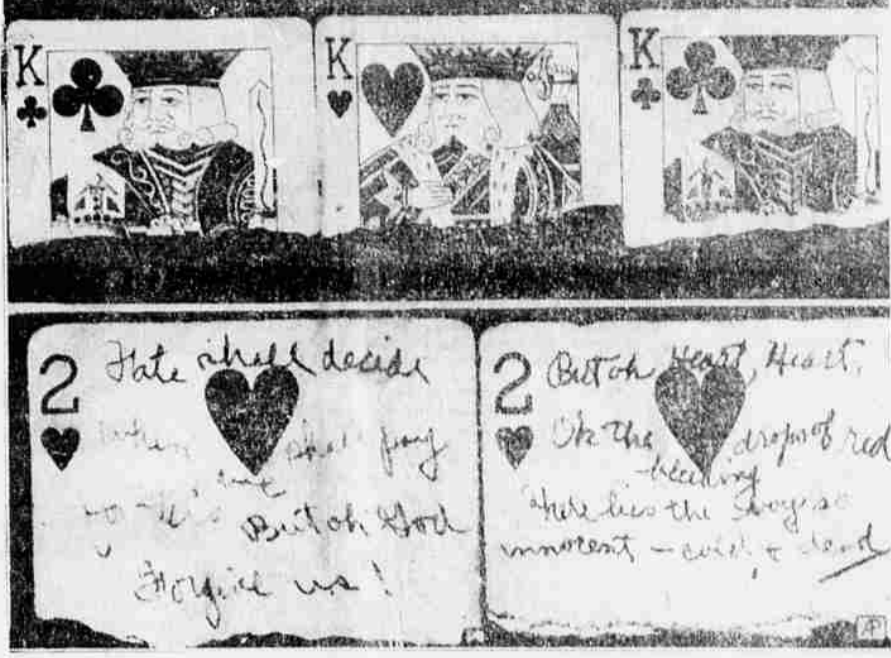 K
K
K
2
Fate shall decide
when shall pay
But oh God
Forgive us!
2
But oh Heart, Heart,
Oh the drops of red
here lies the
innocent - cold, & dead
AP